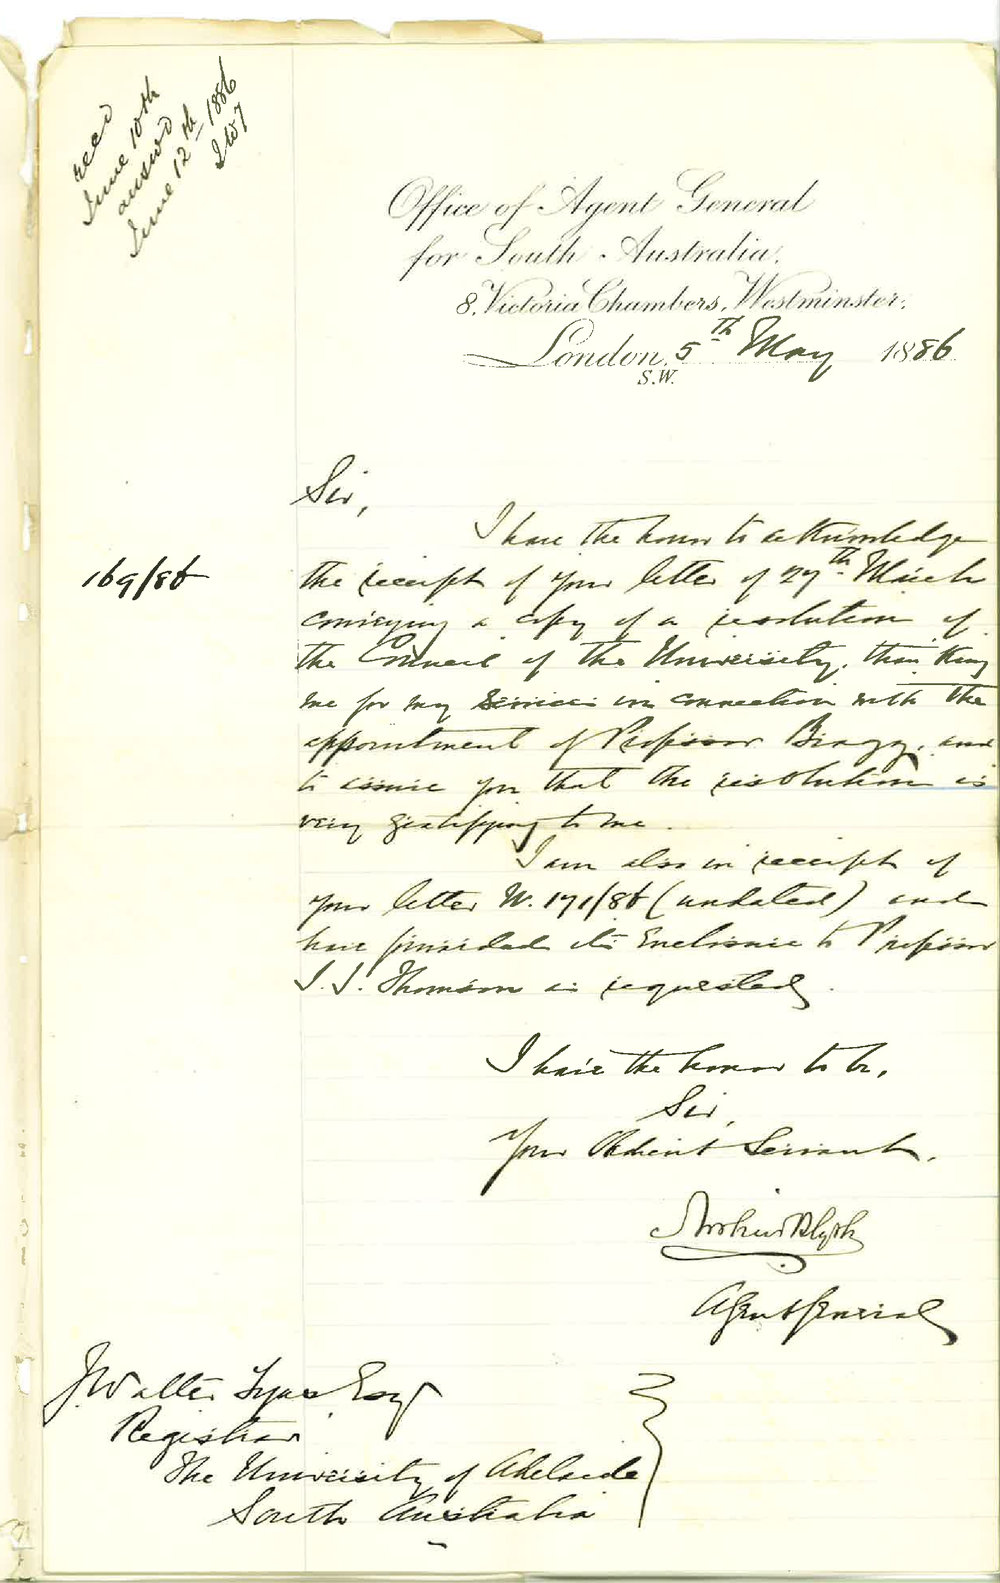 recd
June 10th
answd
June 12th 1886
JWT
Office of Agent General
for South Australia,
8, Victoria Chambers, Westminster,
London, 5th May 1886
S.W.
Sir,
I have the honor to acknowledge
169/86
the receipt of your letter of 27th March
conveying a copy of a resolution of
the Council of the University, thanking
me for my services in connection with the
appointment of Professor Bragg, and
to assure you that the resolution is
very gratifying to me.
I am also in receipt of
your letter No. 171/86 (undated) and
have forwarded its Enclosure to Professor
J. J. Thomson as requested.
I have the honor to be,
Sir,
Your Obedient Servant,
Arthur Blyth
Agent General
J. Walter Tyas Esq
Registrar
The University of Adelaide
South Australia